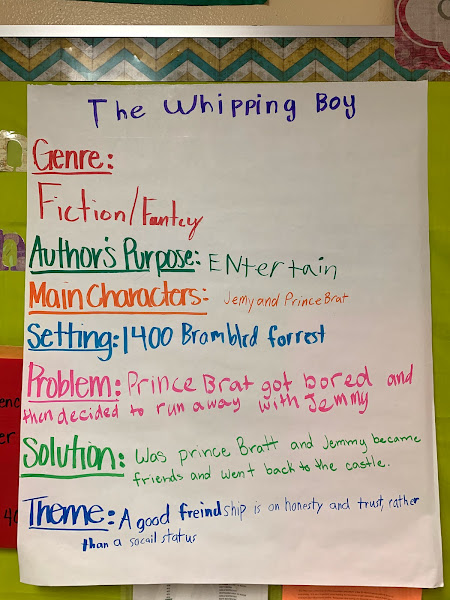 The Whipping Boy
Genre:
Fiction/Fantcy
Author's Purpose: ENtertain
Main Characters: Jemy and Prince Brat
Setting: 1400 Bramblrd forrest
Problem: Prince Brat got bored and
then decided to run away with Jemmy
Solution: Was prince Bratt and Jemmy became
friends and went back to the castle.
Theme: A good freindship is on honesty and trust, rather
than a socail status